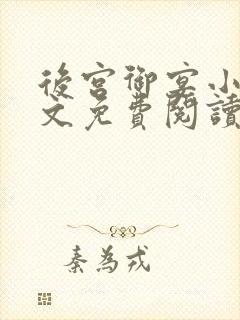 後宮御宴小
文免費閱讀
秦為戎